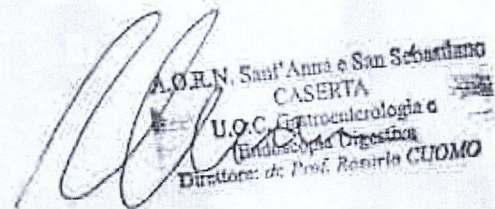 A.O.R.N. Sant'Anna e San Sebastiano
CASERTA
U.O.C. Gastroenterologia e
Endoscopia Digestiva
Direttore: Prof. Rosario CUOMO